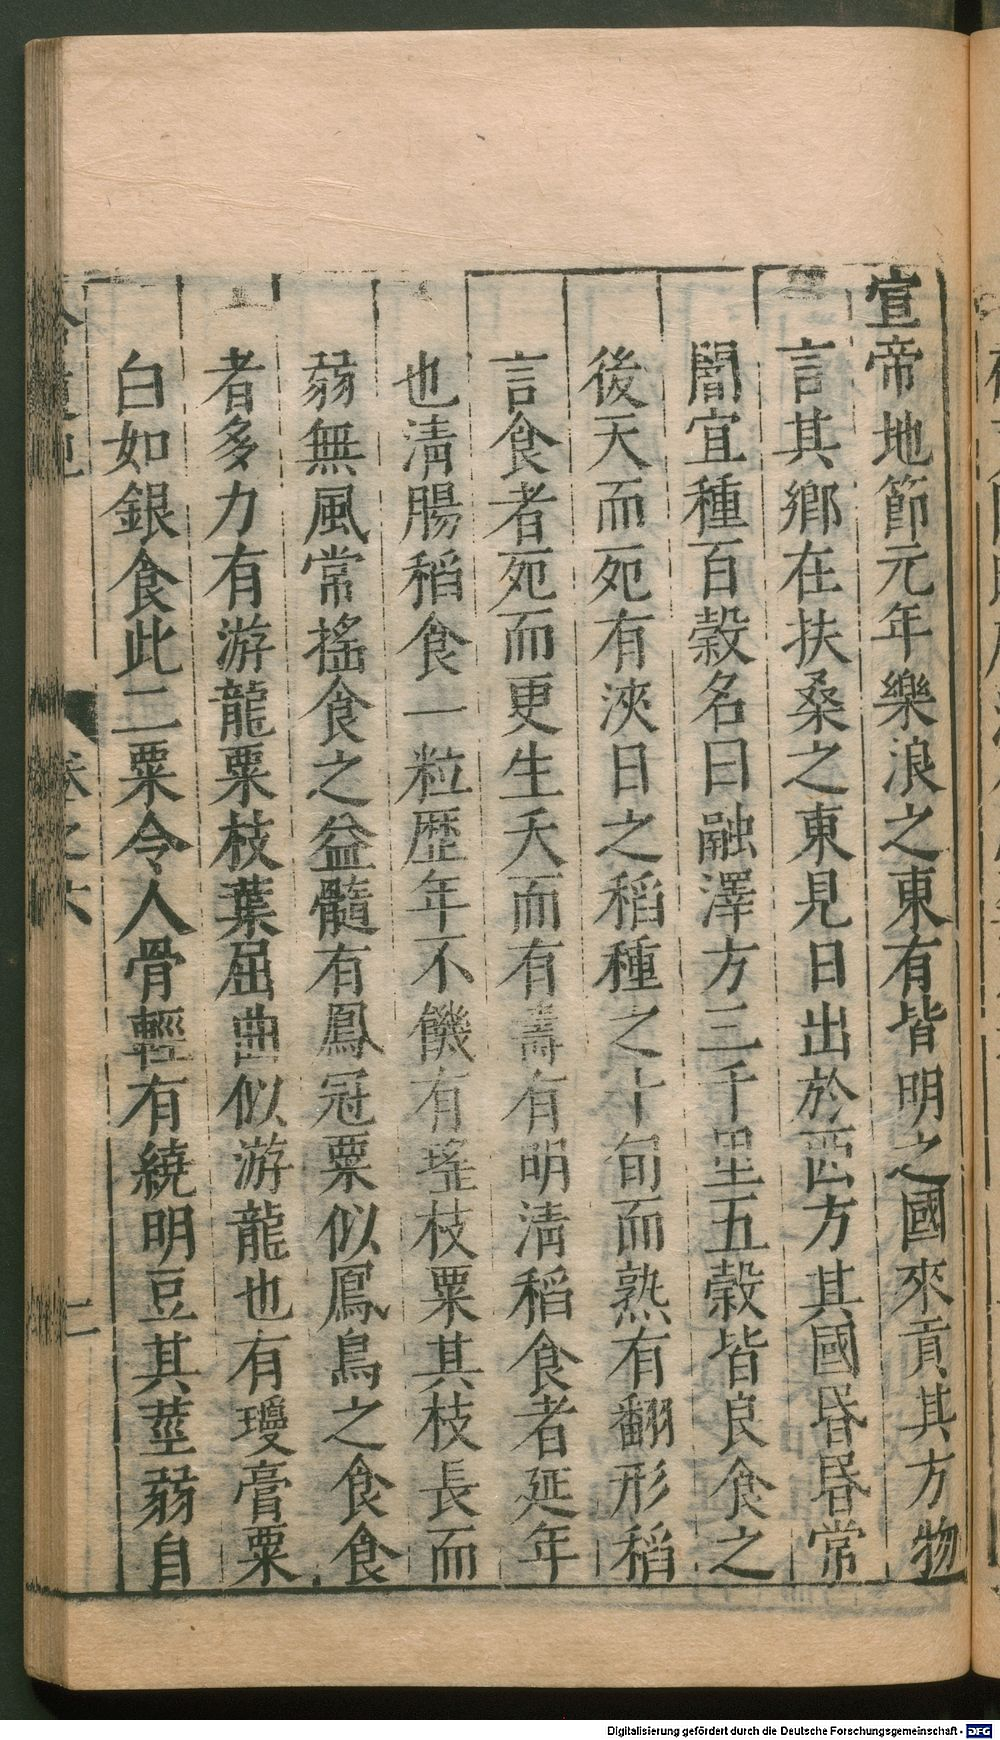 宣帝地節元年樂浪之東有皆明之國來貢其方物
言其鄉在扶桑之東見日出於西方其國昏昏常
闇宜種百穀名曰融澤方三千里五穀皆良食之
後天而死有浹日之稻種之十旬而熟有翻形稻
言食者死而更生夭而有壽有明淸稻食者延年
也淸腸稻食一粒歷年不饑有瑤枝粟其枝長而
弱無風常搖食之益髓有鳳冠粟似鳳鳥之食食
者多力有游龍粟枝葉屈曲似游龍也有瓊膏粟
白如銀食此二粟令人骨輕有繞明豆其莖弱自
卷之六
二
Digitalisierung gefördert durch die Deutsche Forschungsgemeinschaft - DFG